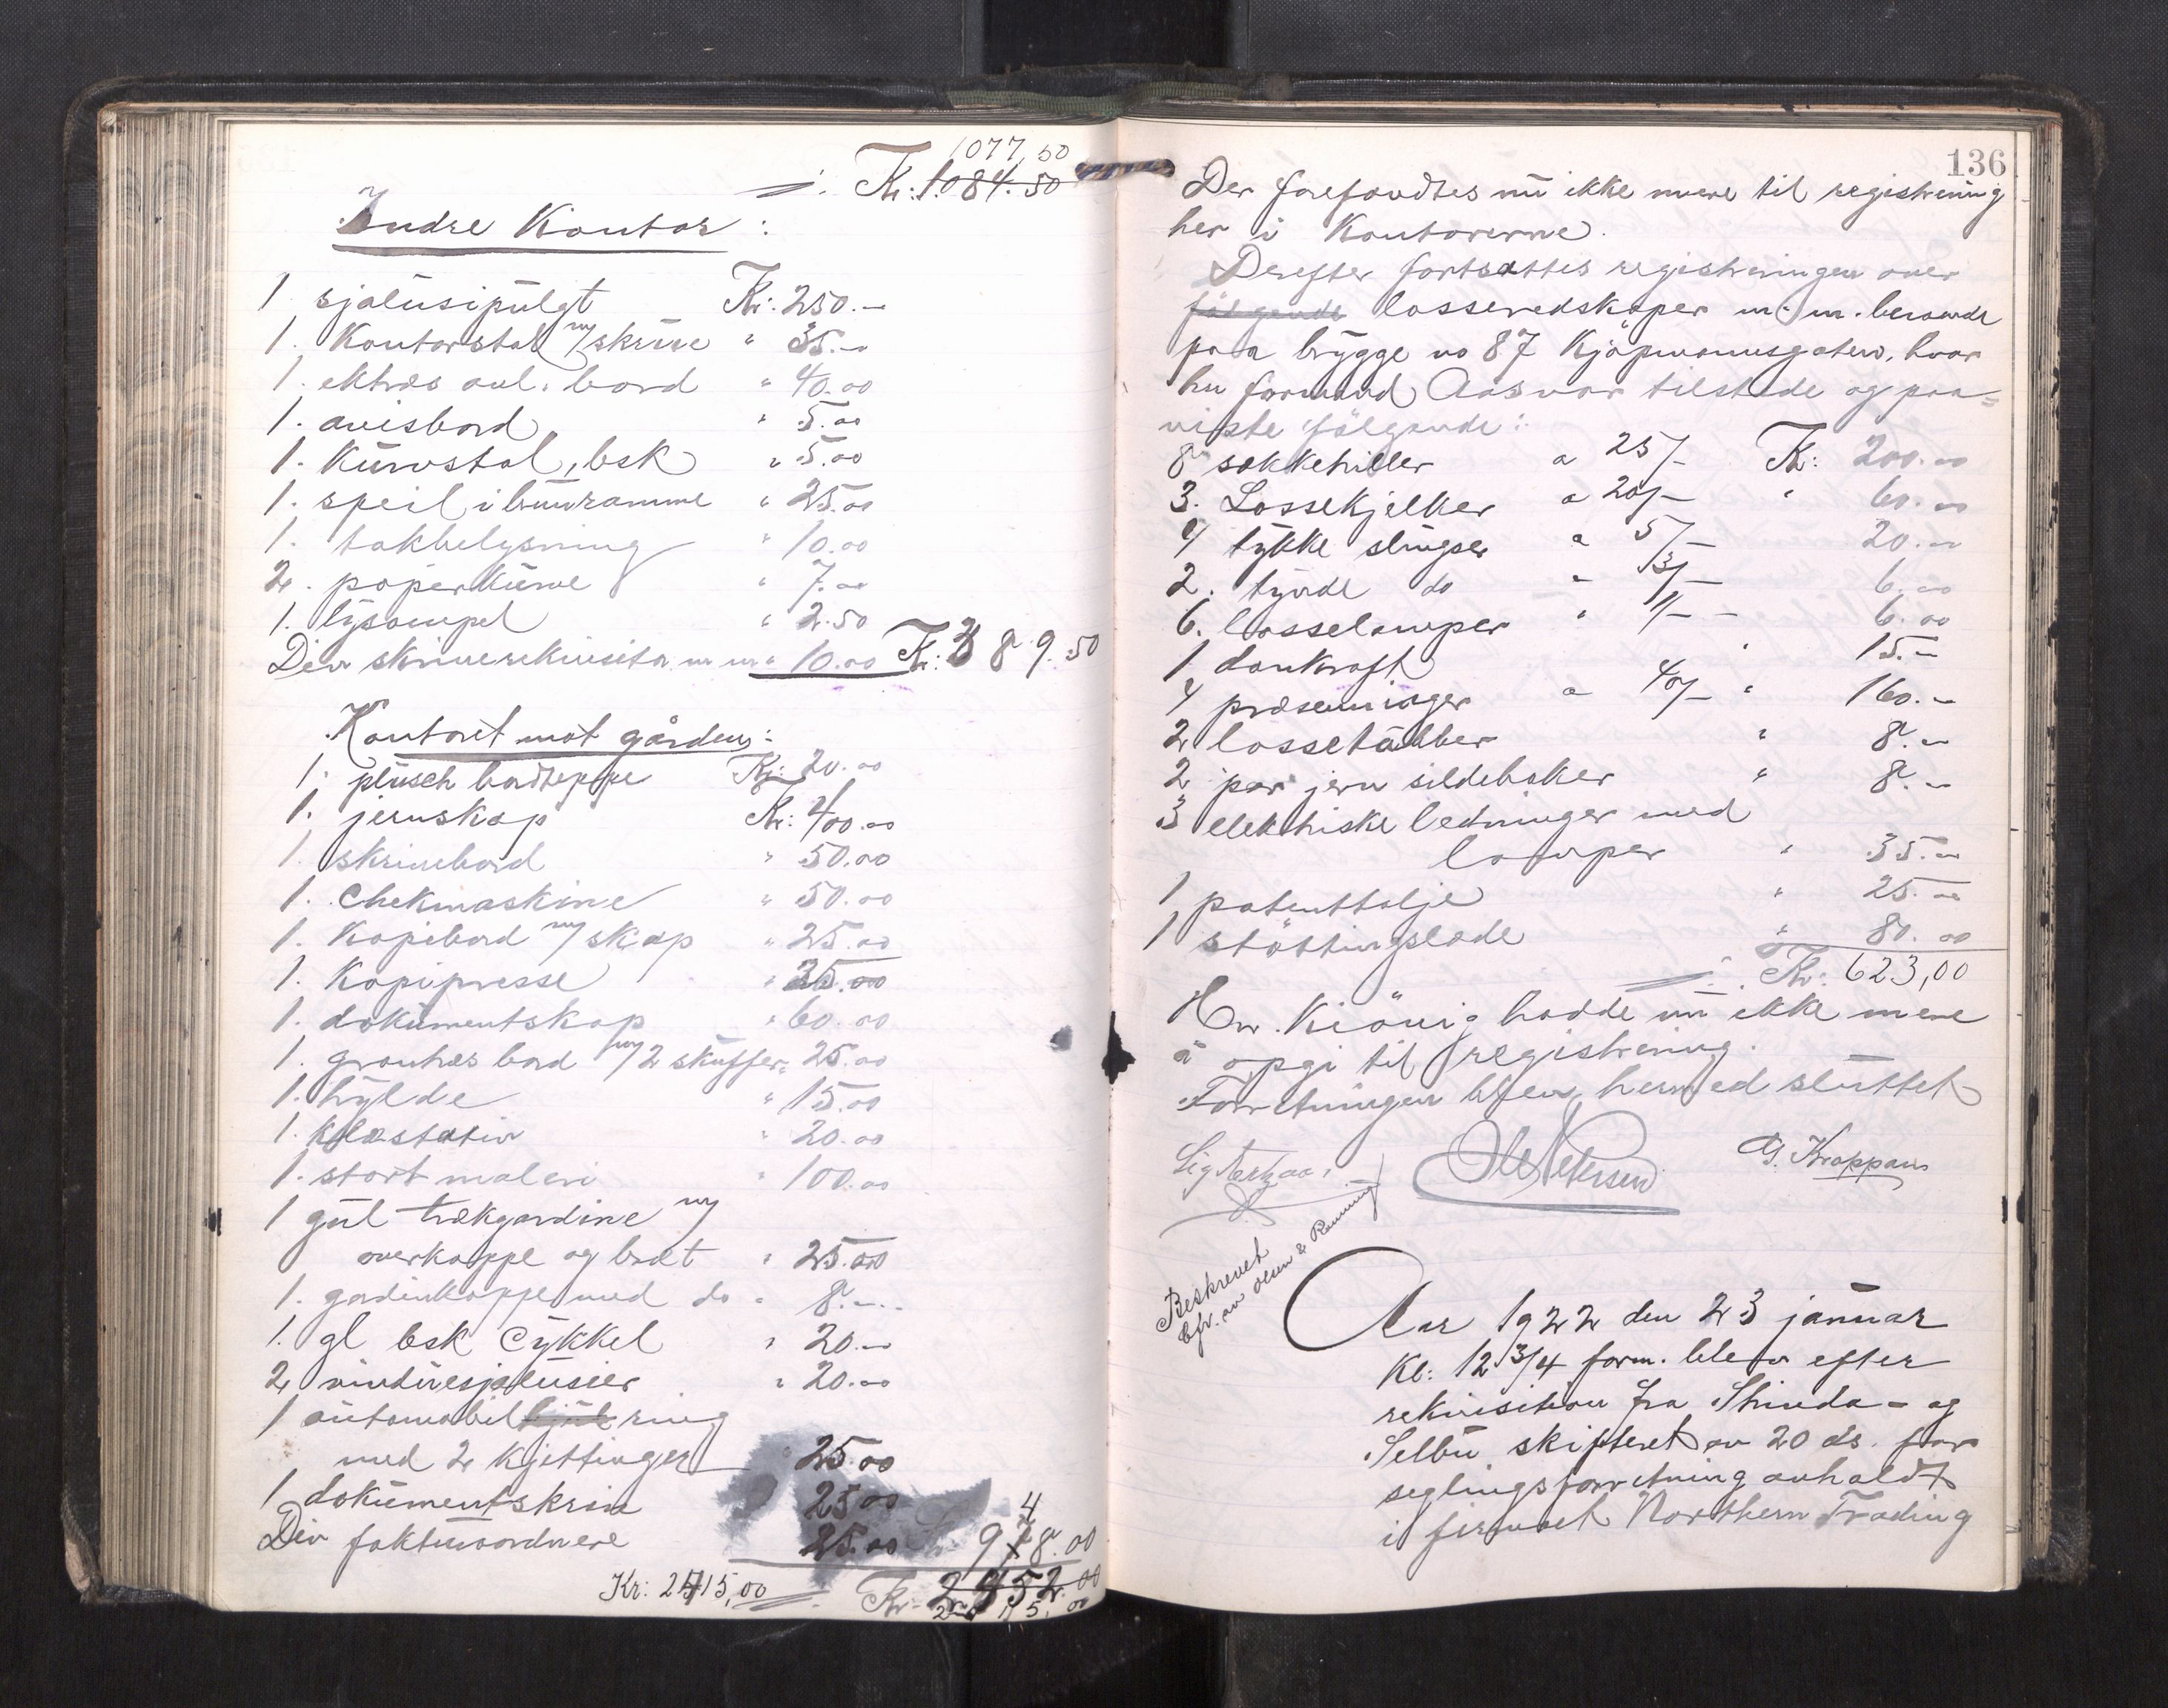 1077,50
∴ Kr: 1084.50
Indre Kontor:
1 sjalusipult Kr: 250.-
1. Kontorstol m/skrue " 35.-
1. ektræs avl. bord " 40.00
1. avisbord " 5.00
1. Kurvstol, bsk " 5.00
1. speil i brun ramme " 25.00
1. takbelysning " 10.00
2. papirkurve " 7.00
1. lysampel " 2.50
Div skriverekvisita m m " 10.00 Kr: 389.50
Kontoret mot gården:
1. plusch bordteppe Kr: 20.00
1. jernskap Kr: 400.00
1. skrivebord " 50.00
1. Chekmaskine " 50.00
1. Kopibord m/ skap " 25.00
1. Kopipresse " 35.00
1. dokumentskap " 60.00
1. grantræs bord m/2 skuffer " 25.00
1. hylde " 15.00
1. klæstativ " 20.00
1. stort maleri " 100.00
1 gul trækgardine m/
overkappe og bræt " 25.00
1. gardinkappe med do " 8.-
1. gl bsk Cykkel " 20.-
2 vinduesjalusier " 20.00
1 automobil hjul ring
med 2 Kjettinger " 25.00
1 dokumentskrin 25.00
Div fakturaordnere 25.00 Kr. 948.00
Kr: 2415,00 Kr. 2452.00
2415,00
136
Der forefandtes nu ikke mere til registrering
her i Kontorerne.
Derefter fortsattes registreringen over
følgende losseredskaper m. m. beroende
paa brygge no 87 Kjøpmannsgaten, hvor
hr formand Aas var tilstede og paa=
viste følgende:
8 sækkehiller a 25/- Kr: 200.00
3. Lossekjelker a 20/- " 60.00
4 tykke slingser a 5/- 20.00
2. tynde do " 3/- 6.00
6. losselamper " 1/- 6.00
1 donkraft " 15.-
4 presenninger a 40/- " 160.-
2 lossetaljer " 8.-
2 par jern sildebøker " 8.-
3 elektriske ledninger med
lamper " 35.-
1 patenttalje " 25.-
1 støttingslæde " 80.00
∴ Kr: 623,00
Hr. Kiönig hadde nu ikke mere
å opgi til registrering.
Forretningen blev hermed sluttet
Ole Petersen G. Kroppan
Beskrevet
Aar 1922 den 23 januar
Kl: 12 3/4 form. blev efter
rekvisition fra Strinda- og
Selbu skifteret av 20 ds. for
seglingsforretning avholdt
i firmaet Northern Trading